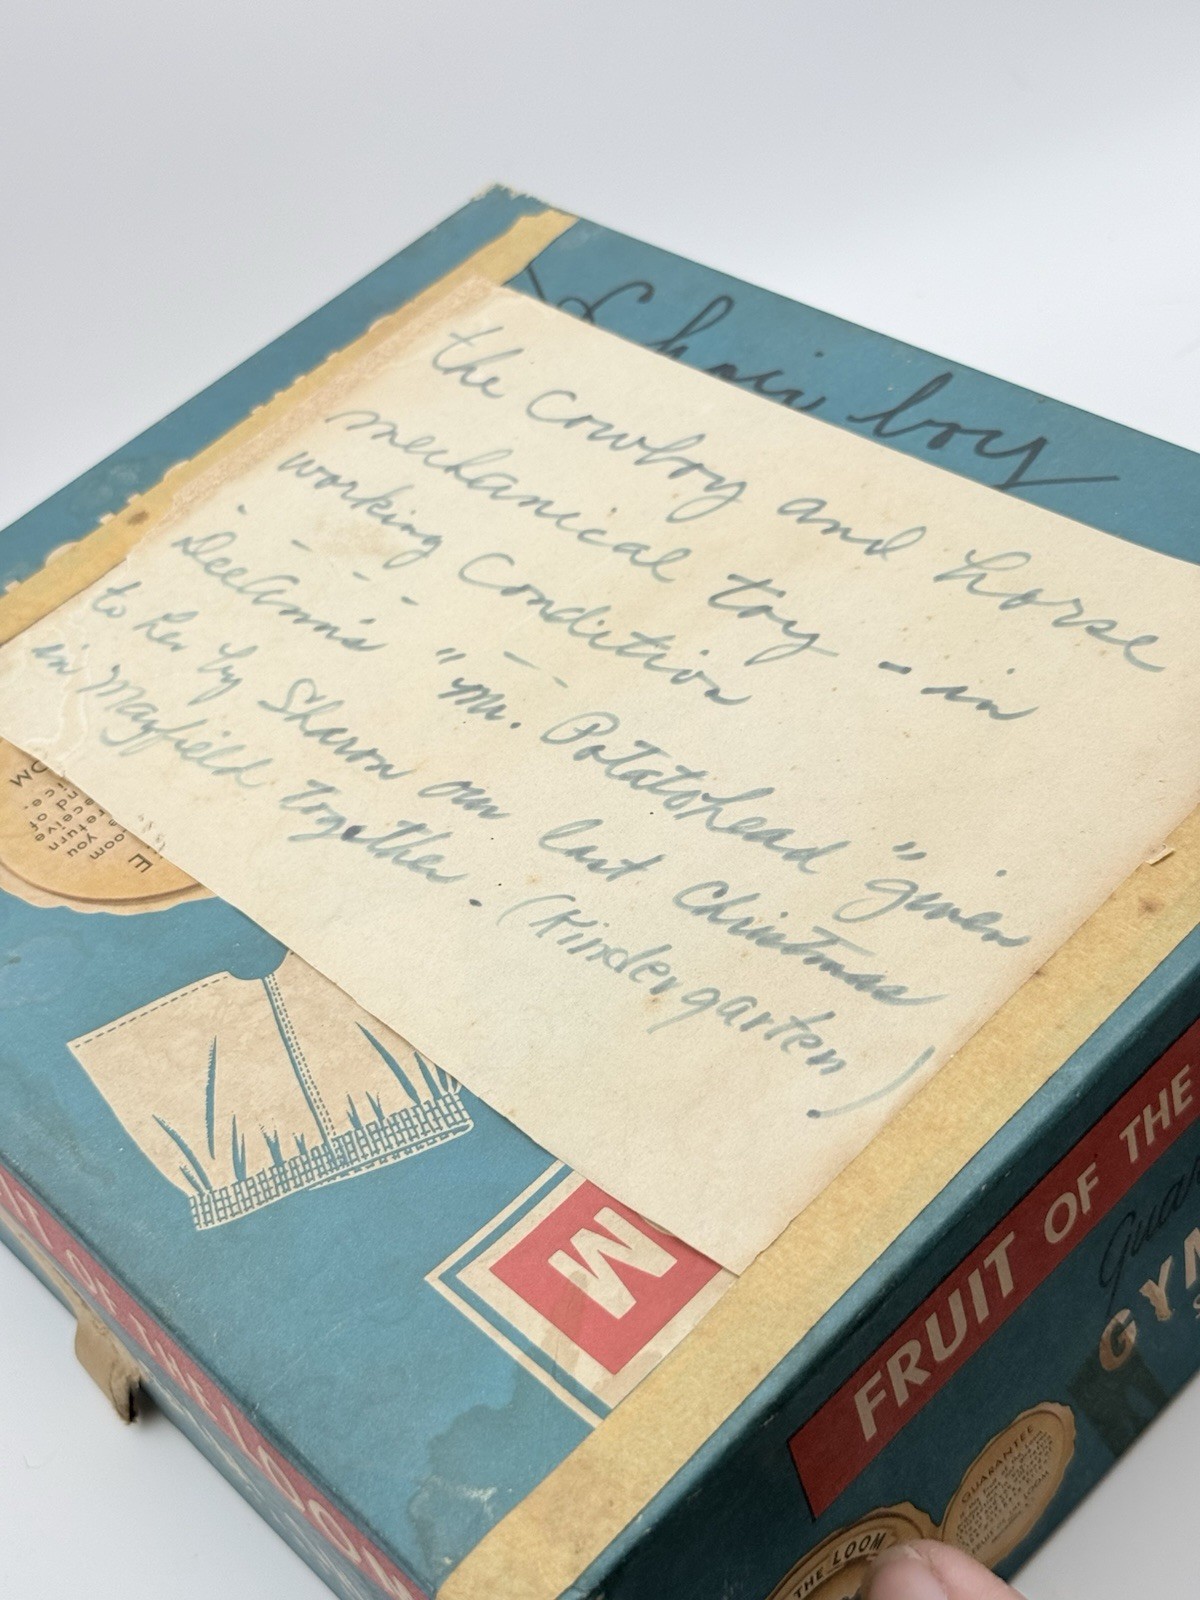 boy
the cowboy and horse
mechanical toy - in
working condition
- - - - - -
DeeAnn's "Mr. Potatohead" given
to her by Sharon our last Christmas
in Mayfield together. (Kindergarten)
M
FRUIT OF THE
Gua
GYM
FRUIT OF THE LOOM
THE LOOM
GUARANTEE